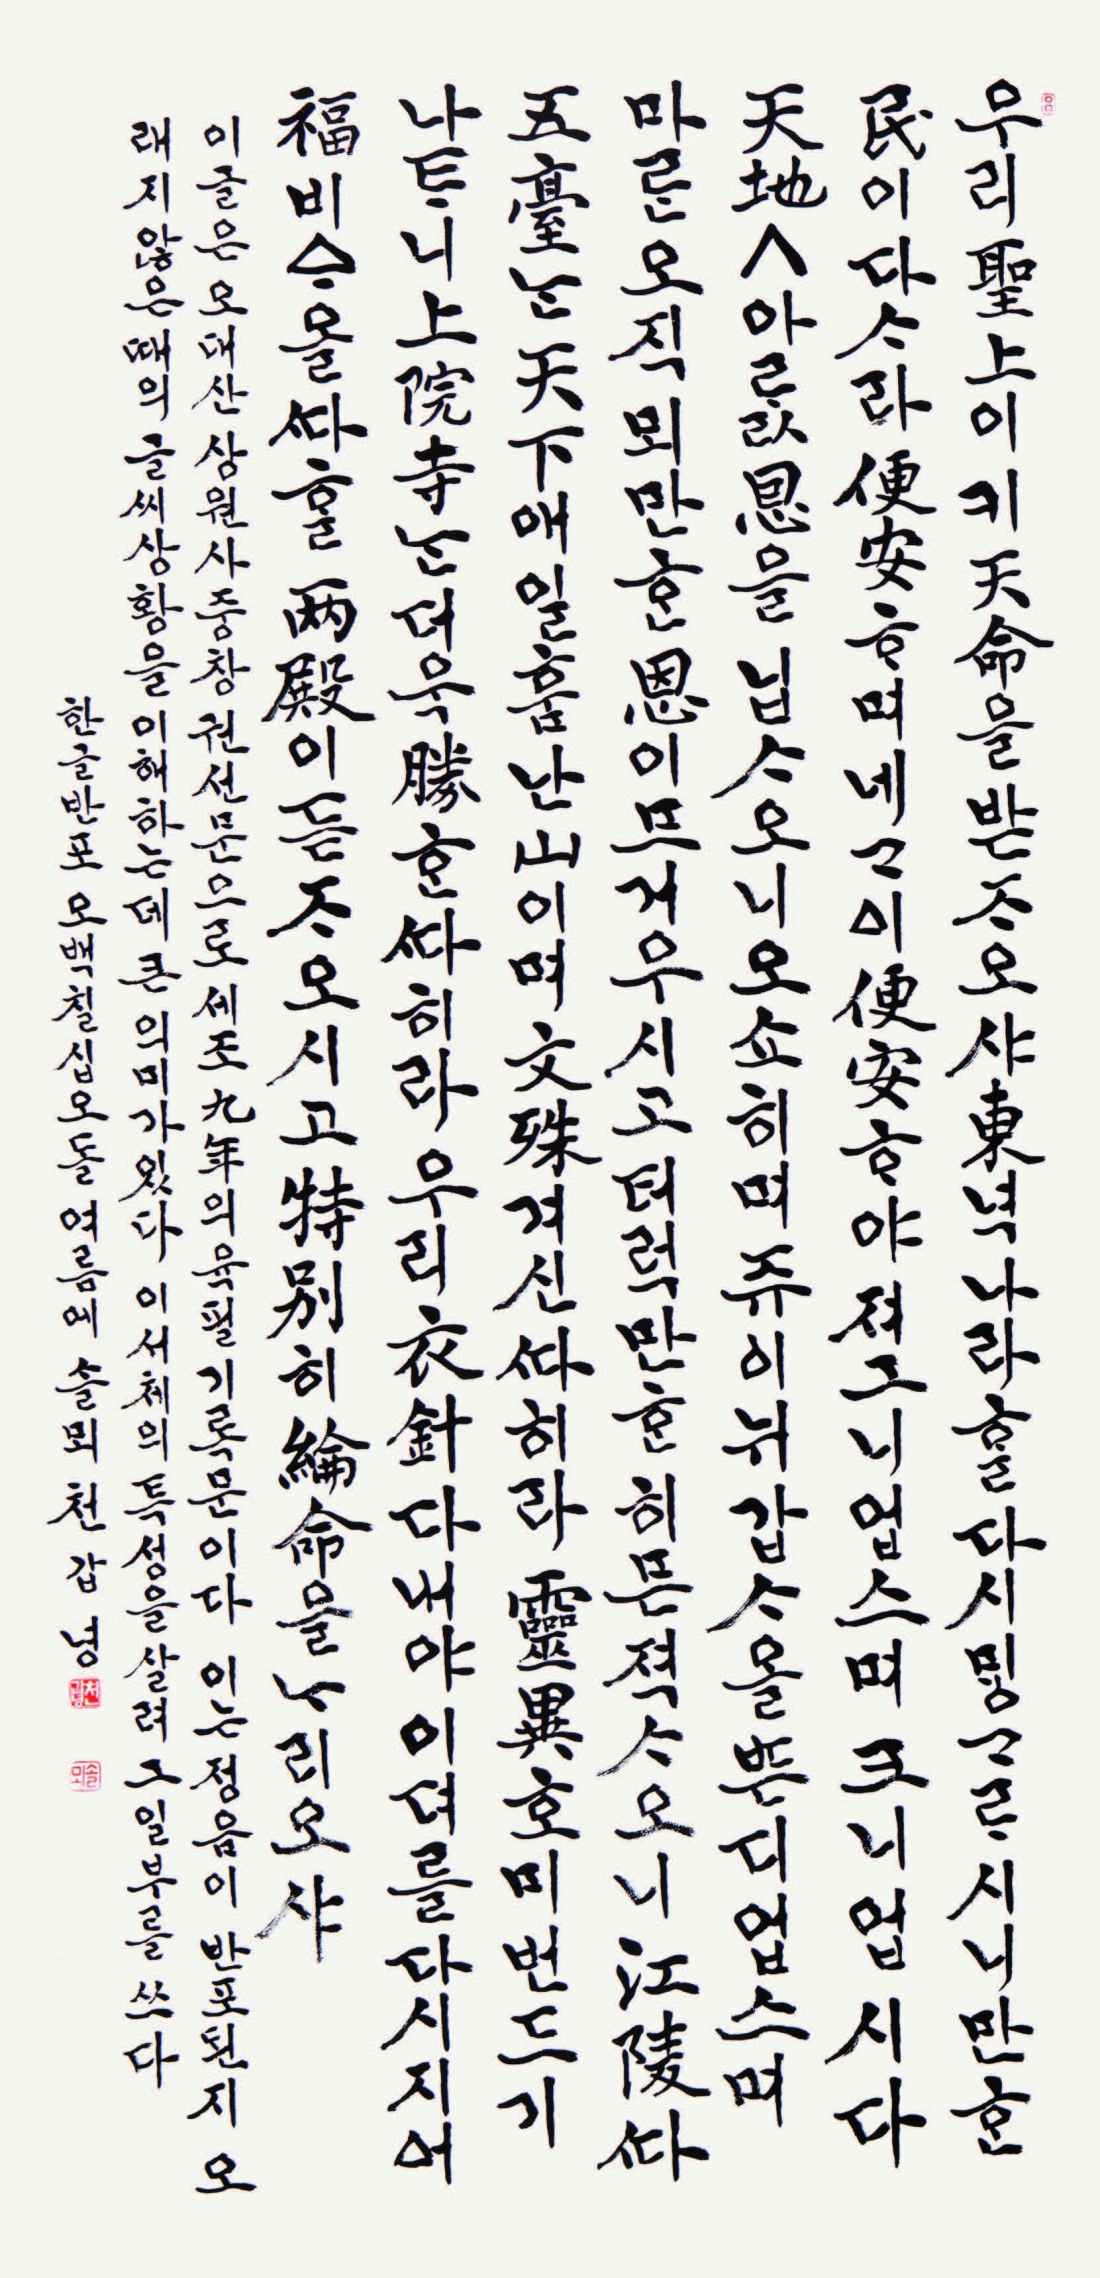 우리 聖上이 키 天命을 받ᄌᆞ오샤 東녁나라ᄒᆞᆯ 다시 밍ᄀᆞᄅᆞ시니 만ᄒᆞᆫ
民이 다 ᄉᆞ라 便安ᄒᆞ며 네 ᄀᆞᅀᅵ 便安ᄒᆞ야 져그니 업스며 크니 업시 다
天地ㅅ 恩을 닙ᄉᆞ오니 오쇼히며 쥬이 뉘 갑ᄉᆞ올 ᄠᅳᆮ디 업스며
마ᄅᆞᆫ 오직 뫼만ᄒᆞᆫ 恩이 므거우시고 터럭만ᄒᆞᆫ 히믄 젹ᄉᆞ오니 江陵ᄯᅡ
五臺ᄂᆞᆫ 天下애 일훔난 山이며 文殊 겨신 ᄯᅡ히라 靈異호미 번드기
나ᄐᆞ니 上院寺ᄂᆞᆫ 더욱 勝ᄒᆞᆫ ᄯᅡ히라 우리 衣針 다내야 이 뎌를 다시 지어
福비ᅀᆞ올 ᄯᅡᄒᆞᆯ 两殿이 듣ᄌᆞ오시고 特別히 綸命을 ᄂᆞ리오샤
이글은 오대산 상원사 중창 권선문으로 세조 九年의 육필기록문이다 이는 정음이 반포된지 오
래지 않은 때의 글씨상황을 이해하는데 큰 의미가 있다 이 서체의 특성을 살려 그 일부를 쓰다
한글반포 오백칠십오돌 여름의 솔뫼 천 갑 녕